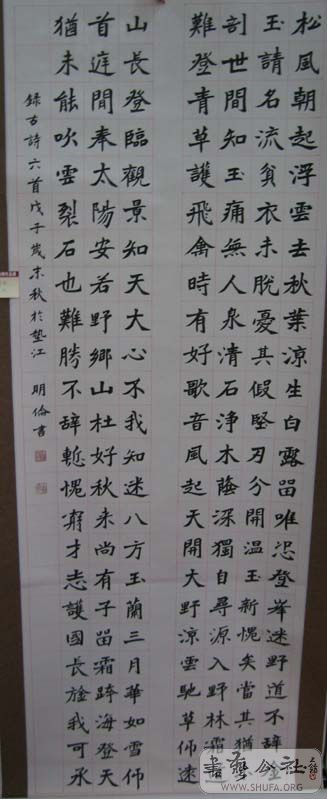 松風朝起浮雲去秋葉涼生白露留唯恐登峯迷野道不辭
玉請名流貧衣未脫憂其假堅刃分開溫玉新愧矣當其猶
剖世間知玉痛無人泉清石淨木蔭深獨自尋源入野林霜
難登青草護飛禽時有好歌音風起天開大野涼雲馳草伂遠
山長登臨觀景知天大心不我知迷八方玉蘭三月華如雪伂
首庭間奉太陽安若野鄉山杜好秋来尚有子留霜跨海登天
猶未能吹雲裂石也難勝不辭慙愧窮才志護國長旌我可承
録古詩六首戊子歲末秋於墊江 明倫書
書藝公社
WWW.SHUFA.ORG